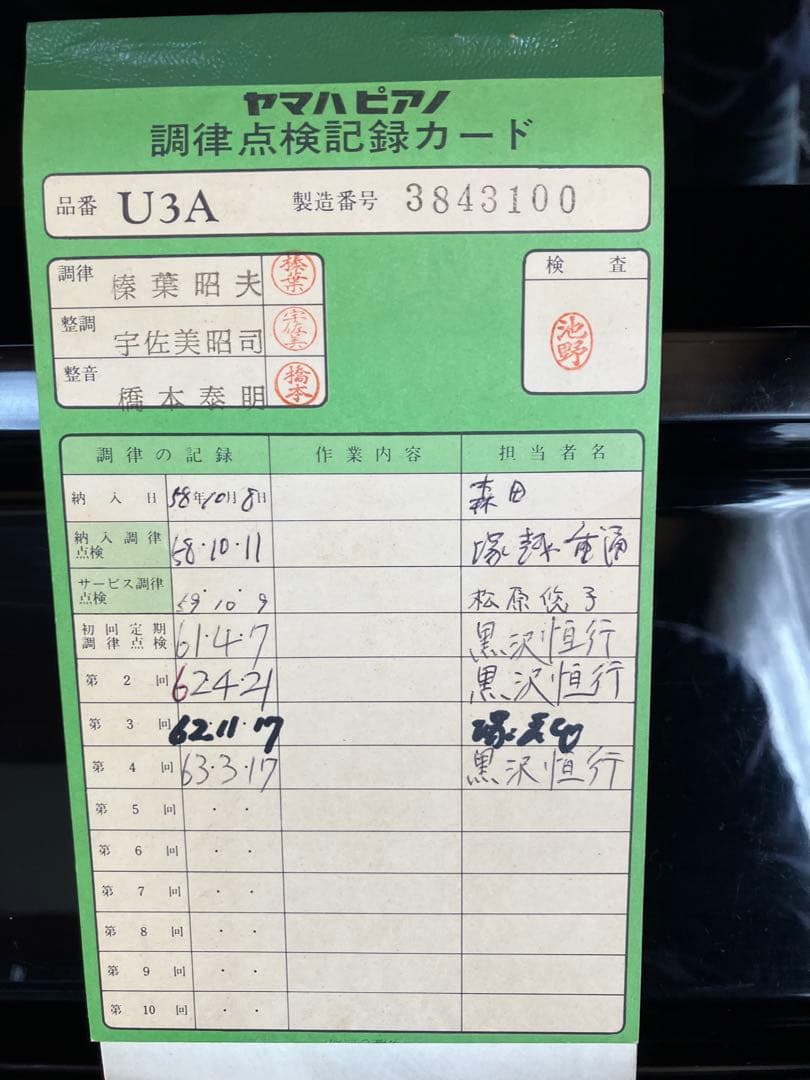 ヤマハピアノ
調律点検記録カード
品番 U3A 製造番号 3843100
調律 榛葉昭夫 榛葉
整調 宇佐美昭司 宇佐美
整音 橋本泰明 橋本
検査
池野
調律の記録 作業内容 担当者名
納入日 58年10月8日 森田
納入調律点検 58・10・11 塚越
サービス調律点検 59・10・9 松原悦子
初回定期調律点検 61・4・7 黒沢恒行
第2回 62 4・21 黒沢恒行
第3回 62・11・17 塚
第4回 63・3・17 黒沢恒行
第5回 ・ ・
第6回 ・ ・
第7回 ・ ・
第8回 ・ ・
第9回 ・ ・
第10回 ・ ・